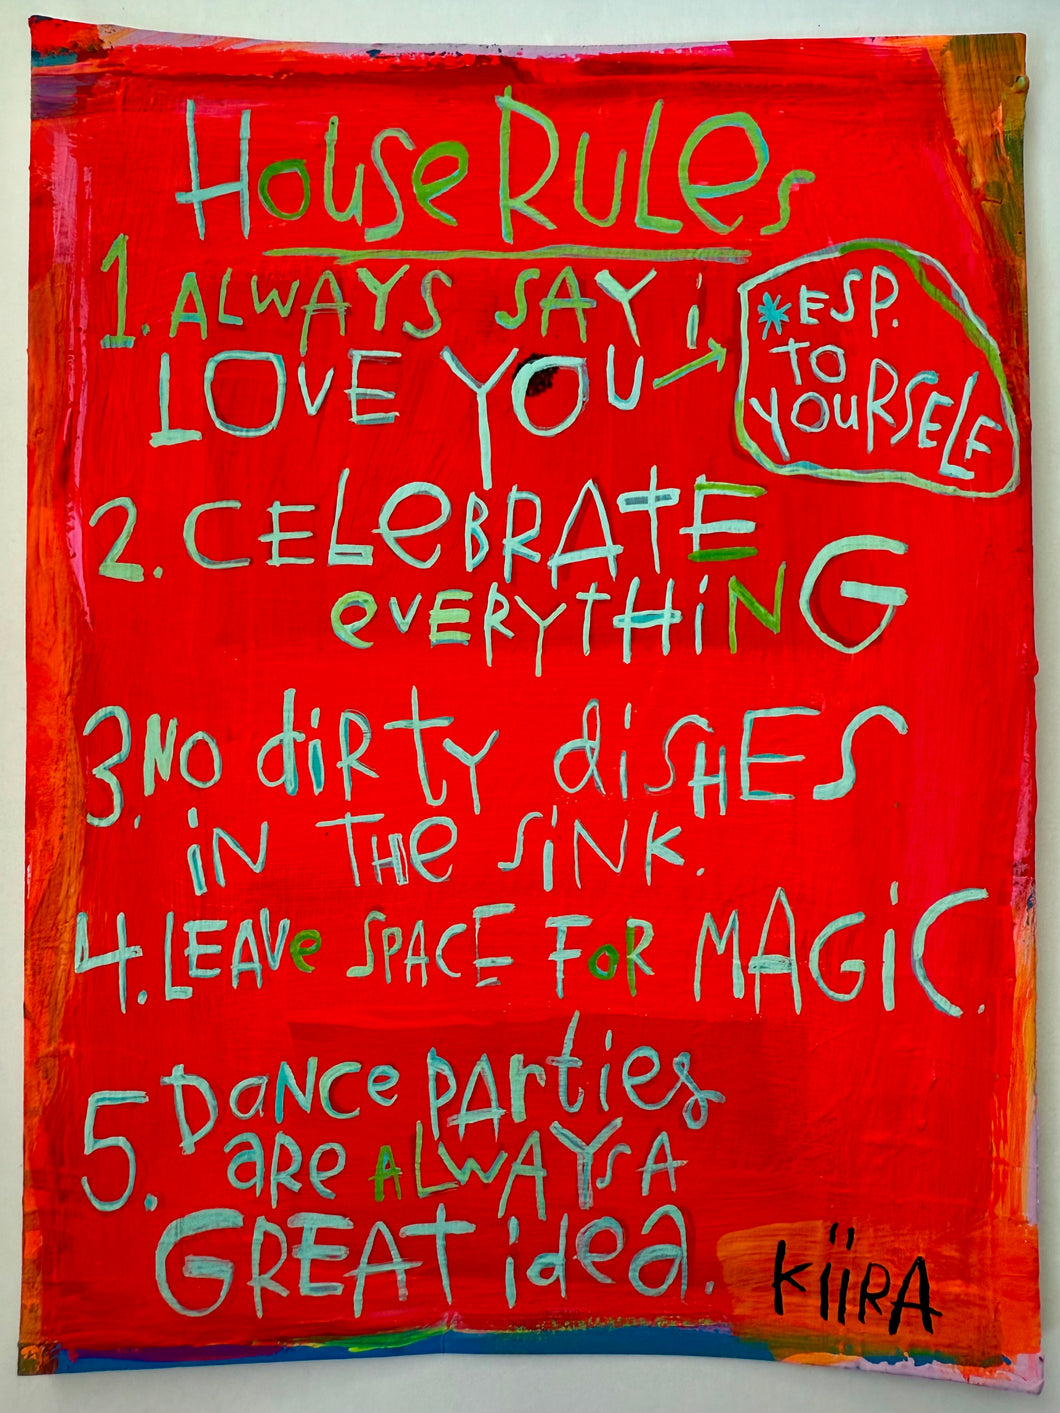 House Rules
1. ALWAYS SAY i
LOVE YOU →
*ESP.
TO
YOURSELF
2. CELEBRATE
eVERYTHiNG
3. NO diRTY diSHES
iN THe SiNK.
4. LEAVe SPACE FoR MAGiC.
5. DaNCe PArties
aRe ALWAYS A
GREAT idea.
KiiRA